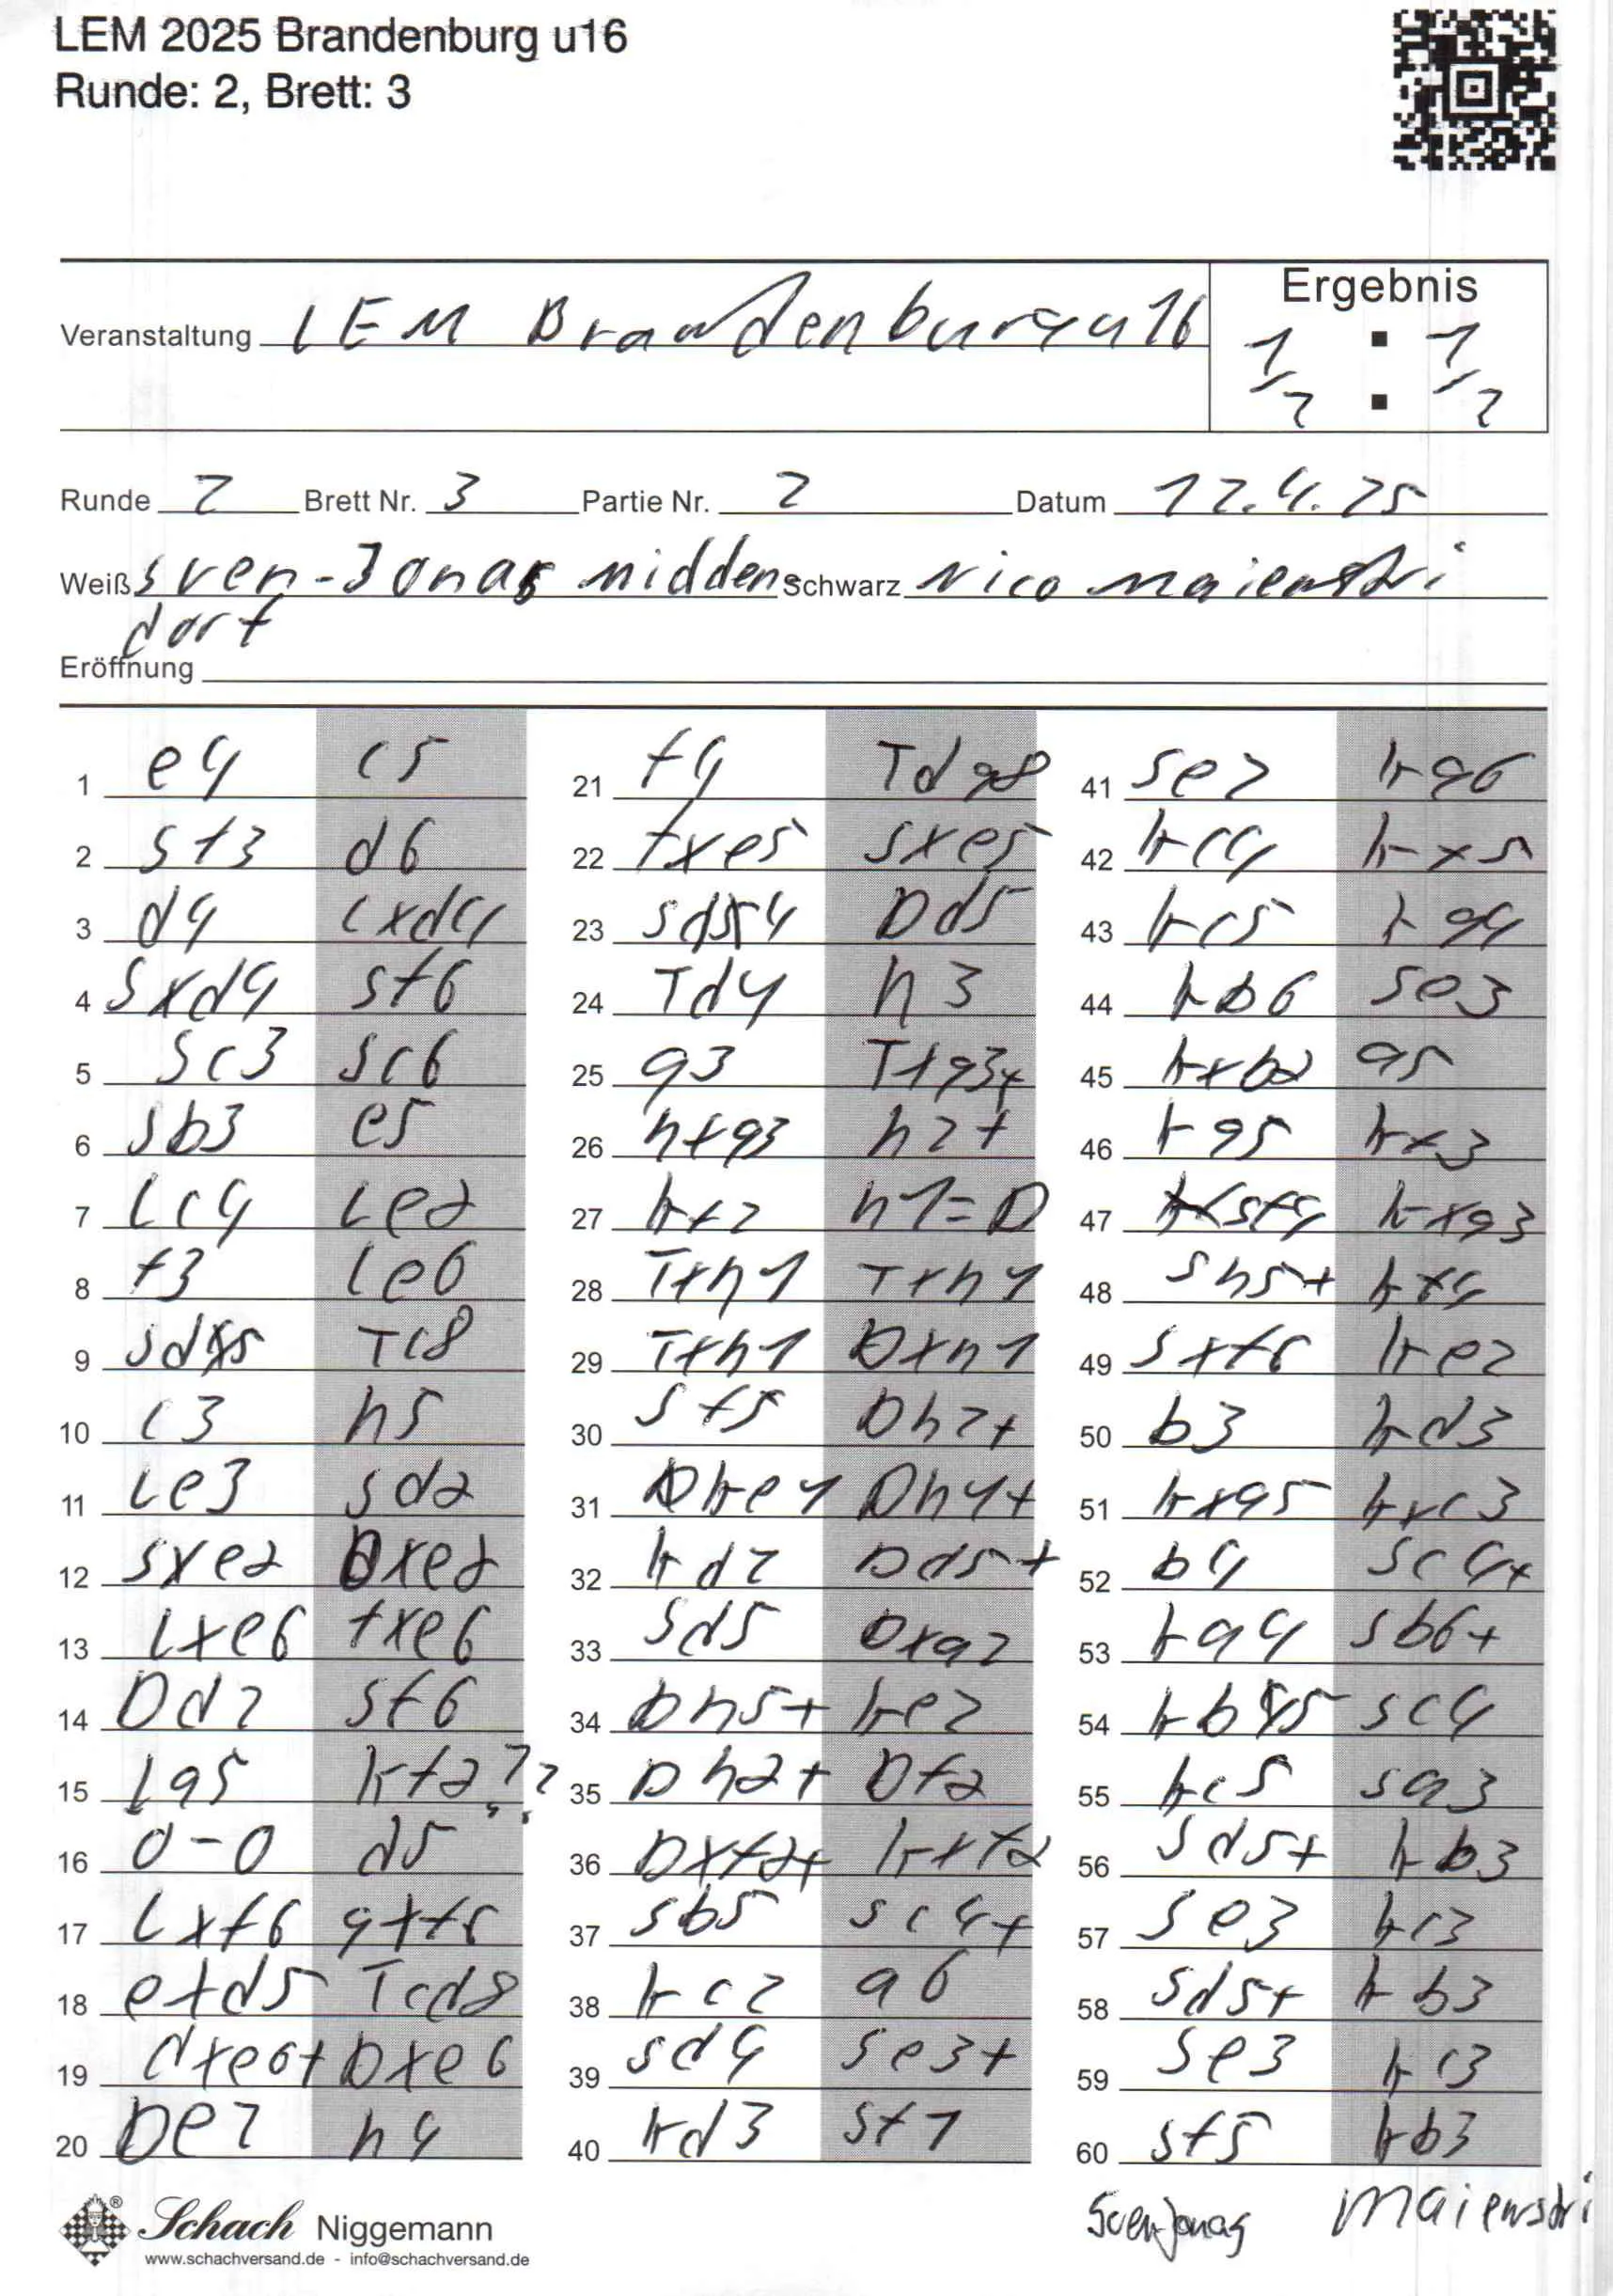 LEM 2025 Brandenburg u16
Runde: 2, Brett: 3
Ergebnis
Veranstaltung LEM Brandenburg u16
1/2 : 1/2
Runde 2 Brett Nr. 3 Partie Nr. 2 Datum 12.4.25
Weiß Sven-Jonas Middens Schwarz Nico Maiewski
dorf
Eröffnung
1 e4 c5
2 Sf3 d6
3 d4 cxd4
4 Sxd4 Sf6
5 Sc3 Sc6
6 Sb3 e5
7 Lc4 Le7
8 f3 Le6
9 Sd5 Tc8
10 c3 h5
11 Le3 Sd7
12 Sxe7 Dxe7
13 Lxe6 fxe6
14 Dd2 Sf6
15 Lg5 Kf7??
16 0-0 d5
17 Lxf6 gxf6
18 exd5 Tcd8
19 dxe6+ Dxe6
20 De2 h4
21 f4 Tdg8
22 fxe5 Sxe5
23 Sd4 Dd5
24 Td4 h3
25 g3 Txg3+
26 hxg3 h2+
27 Kf2 h1=D
28 Txh1 Txh1
29 Txh1 Dxh1
30 Sf5 Dh2+
31 Ke1 Dh1+
32 Kd2 Dd5+
33 Sd5 Dxa2
34 Dh5+ Ke7
35 Dh7+ Df7
36 Dxf7+ Kxf7
37 Sb5 Sc4+
38 Kc2 a6
39 Sd4 Se3+
40 Kd3 Sf1
41 Se2 Kg6
42 Kc4 Kf5
43 Kc5 Kg4
44 Kb6 Se3
45 Kxb7 a5
46 Ka5 Kf3
47 Sf4 Kxg3
48 Sh5+ Kf4
49 Sxf6 Ke2
50 b3 Kd3
51 Kxa5 Kxc3
52 b4 Sc4+
53 Ka4 Sb6+
54 Kb5 Sc4
55 Kc5 Sa3
56 Sd5+ Kb3
57 Se3 Kc3
58 Sd5+ Kb3
59 Se3 Kc3
60 Sf5 Kb3
SvenJonas Maiewski
Schach Niggemann
www.schachversand.de - info@schachversand.de